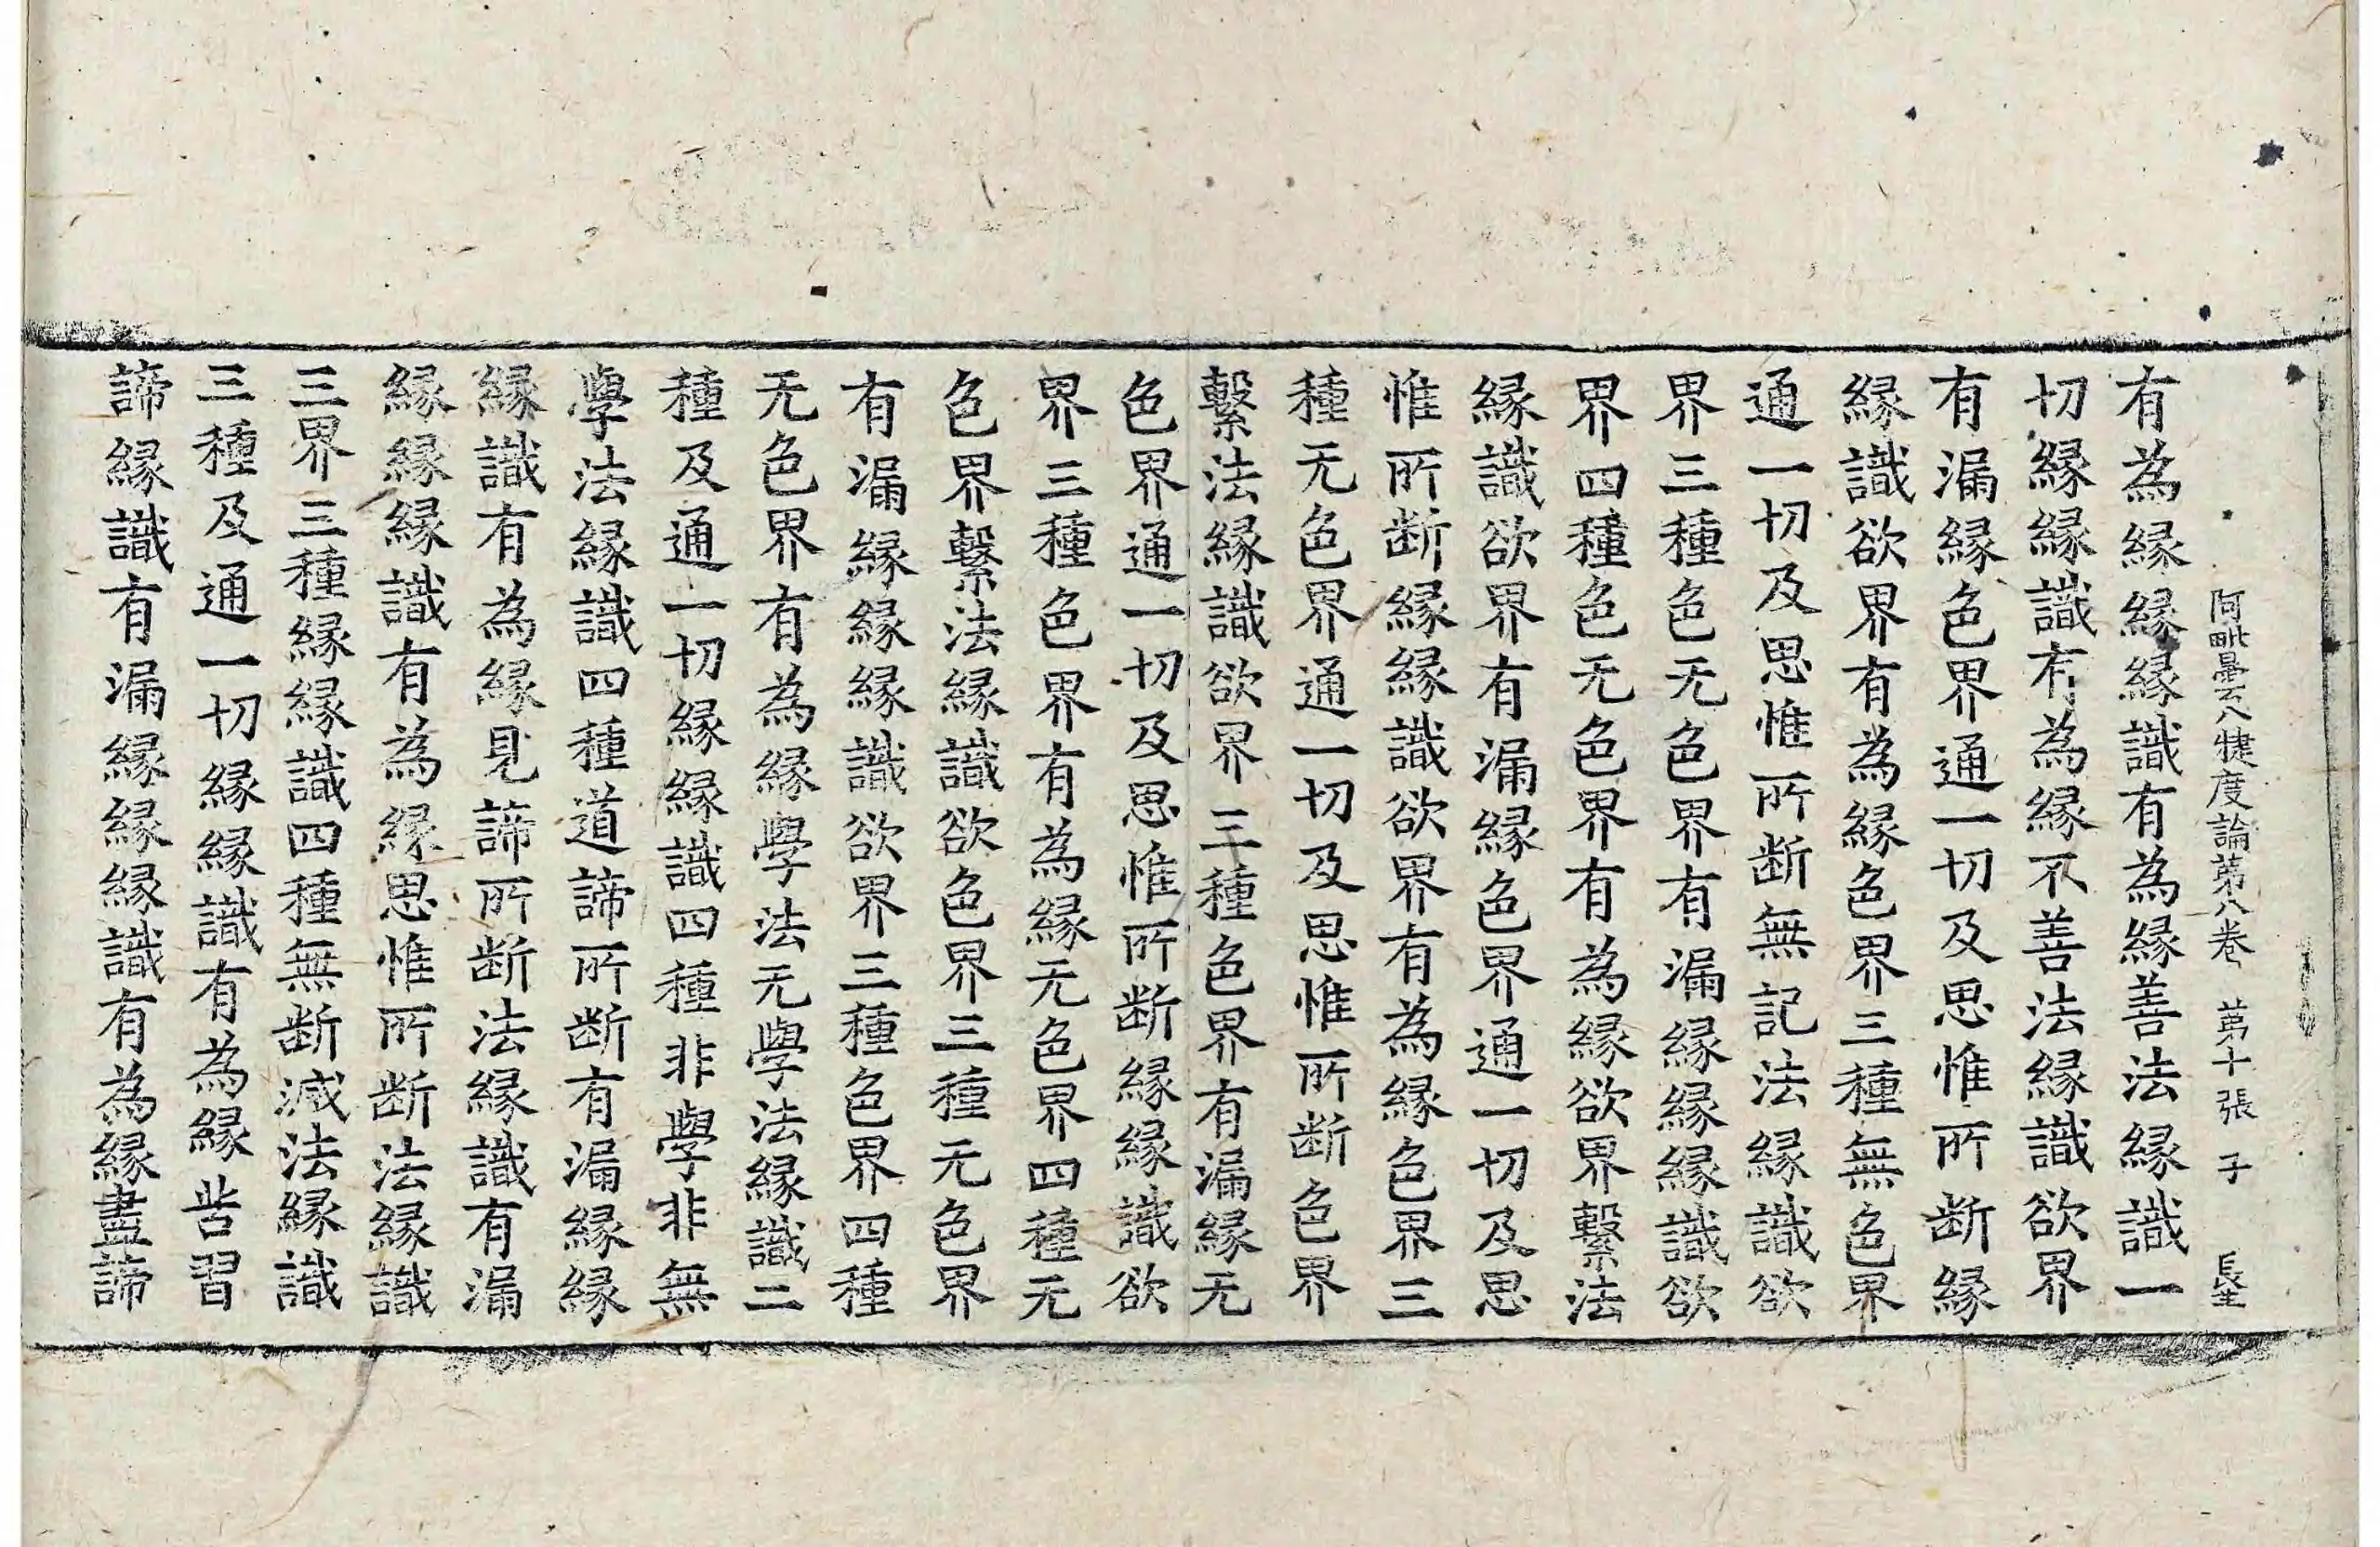 阿毗曇八犍度論第八卷 第十張 子 長生
有為緣緣緣識有為緣善法緣識一
切緣緣識有為緣不善法緣識欲界
有漏緣色界通一切及思惟所断緣
緣識欲界有為緣色界三種無色界
通一切及思惟所断無記法緣識欲
界三種色无色界有漏緣緣緣識欲
界四種色无色界有為緣欲界繫法
緣識欲界有漏緣色界通一切及思
惟所断緣緣識欲界有為緣色界三
種无色界通一切及思惟所断色界
繫法緣識欲界三種色界有漏緣无
色界通一切及思惟所断緣緣識欲
界三種色界有為緣无色界四種无
色界繫法緣識欲色界三種无色界
有漏緣緣緣識欲界三種色界四種
无色界有為緣學法无學法緣識二
種及通一切緣緣識四種非學非無
學法緣識四種道諦所断有漏緣緣
緣識有為緣見諦所断法緣識有漏
緣緣緣識有為緣思惟所断法緣識
三界三種緣緣識四種無断滅法緣識
三種及通一切緣緣識有為緣甞習
諦緣識有漏緣緣緣識有為緣盡諦